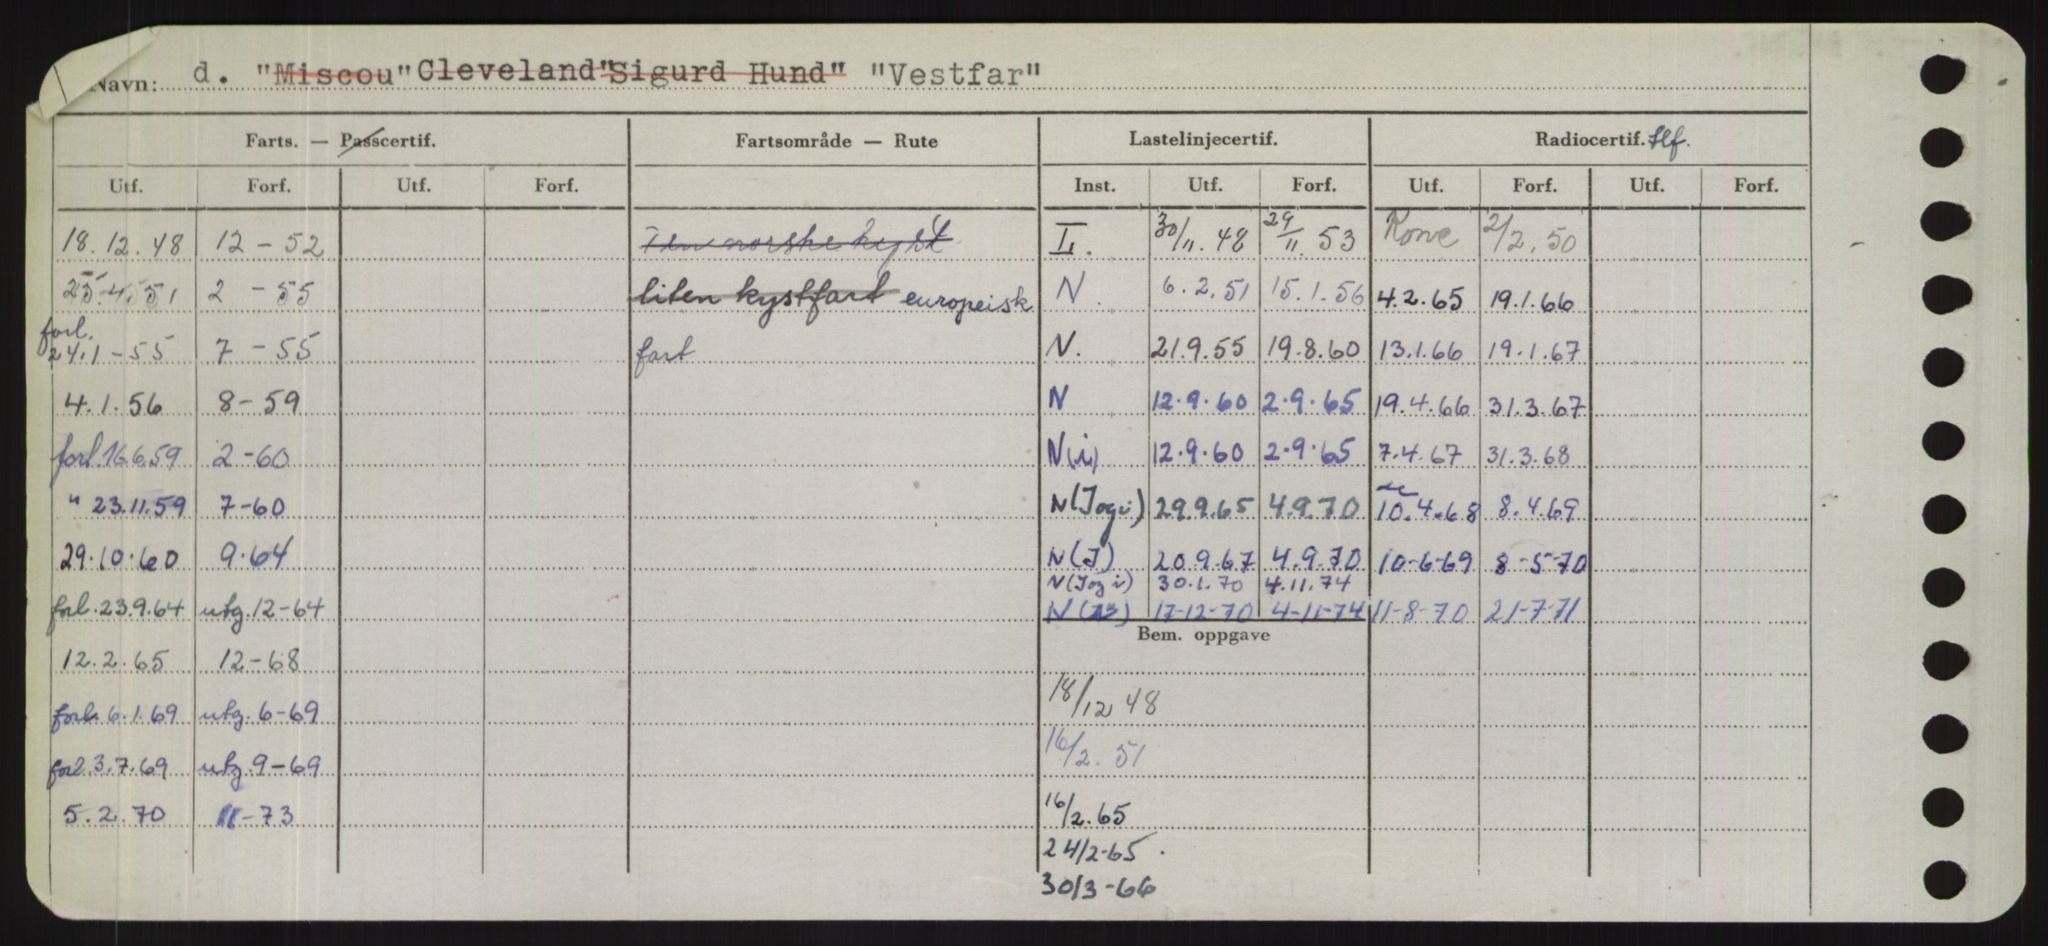 Navn: d. "Miscou" Cleveland "Sigurd Hund" "Vestfar"
Farts. — Passcertif. Fartsområde — Rute Lastelinjecertif. Radiocertif. tlf.
Utf. Forf. Utf. Forf. Inst. Utf. Forf. Utf. Forf. Utf. Forf.
18.12.48 12 - 52 Den norske kyst I. 30/11.48 29/11 53 2/2.50
25.4.51 2 - 55 liten kystfart europeisk N. 6.2.51 15.1.56 4.2.65 19.1.66
forl.
24.1-55 7 - 55 fart N. 21.9.55 19.8.60 13.1.66 19.1.67
4.1.56 8-59 N 12.9.60 2.9.65 19.4.66 31.3.67
forl. 16.6.59 2-60 N(i) 12.9.60 2.9.65 7.4.67 31.3.68
" 23.11.59 7-60 N(J og i) 29.9.65 4.9.70 10.4.68 8.4.69
29.10.60 9.64 N(J) 20.9.67 4.9.70 10-6-69 8-5-70
N(J og i) 30.1.70 4.11.74
forl. 23.9.64 utg. 12-64 N 17-12-70 4-11-74 11-8-70 21-7-71
Bem. oppgave
12.2.65 12-68
18/12 48
forl. 6.1.69 utg. 6-69
16/2.51
forl. 3.7.69 utg. 9-69
5.2.70 11-73 16/2.65
24/2-65.
30/3-66